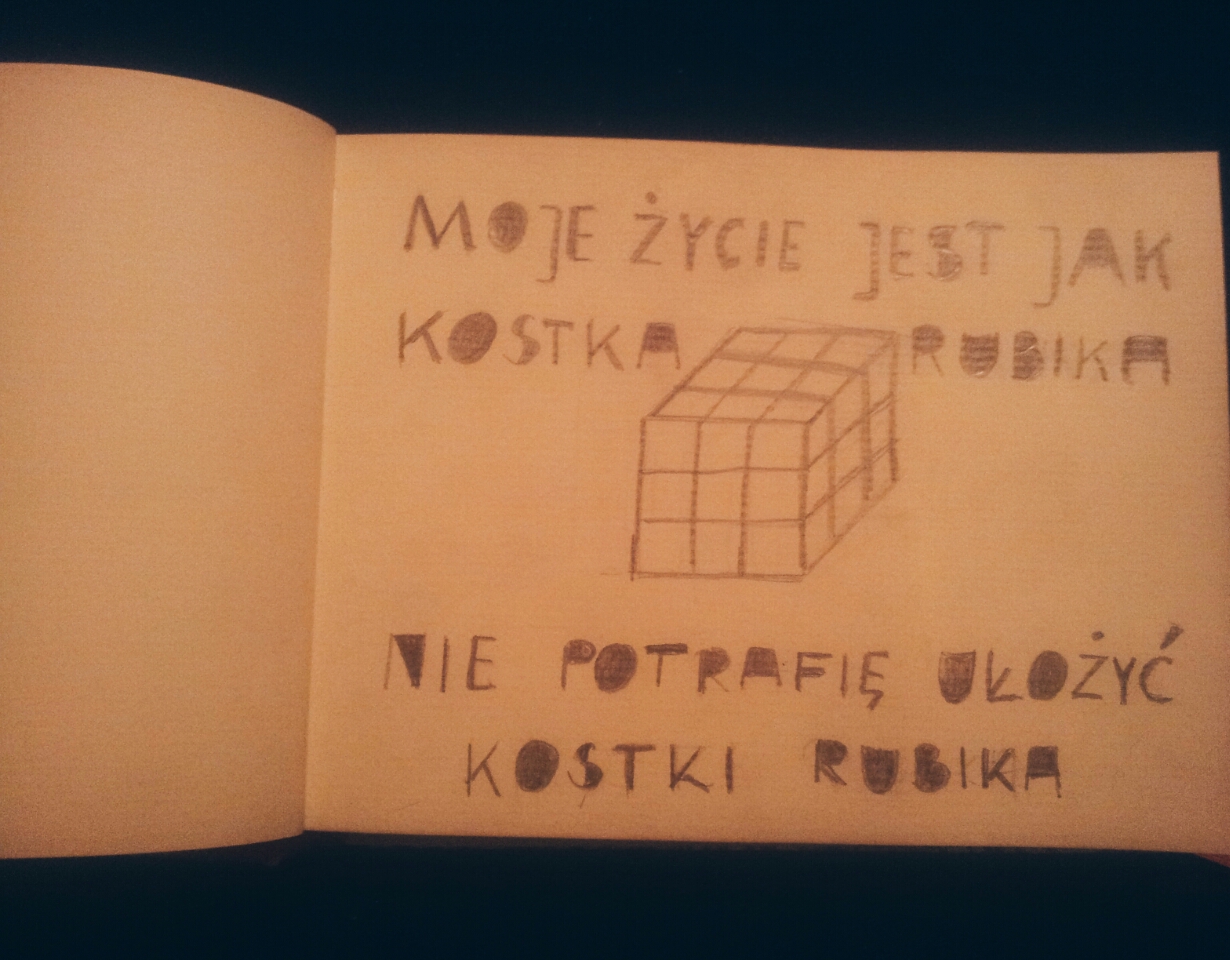 MOJE ŻYCIE JEST JAK
KOSTKA RUBIKA
NIE POTRAFIĘ UŁOŻYĆ
KOSTKI RUBIKA